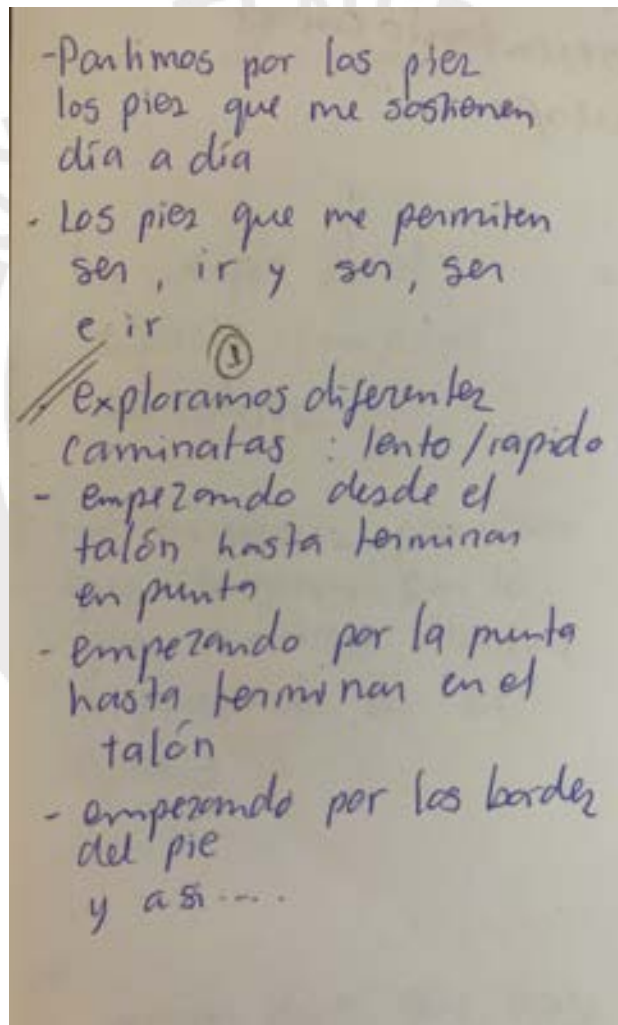 -Partimos por los pies
los pies que me sostienen
día a día
- Los pies que me permiten
ser, ir y ser, ser
e ir
①
exploramos diferentes
caminatas : lento/rapido
- empezando desde el
talón hasta terminar
en punta
- empezando por la punta
hasta terminar en el
talón
- empezando por los bordes
del pie
y asi....